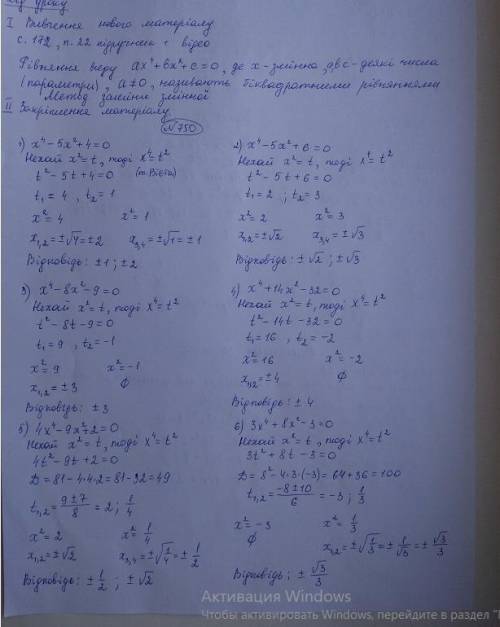 Хід уроку
I Вивчення нового матеріалу
с. 172, п. 22 підручник + відео
Рівняння виду ax⁴+bx²+c=0, де x - змінна, a,b,c - деякі числа
(параметри), a≠0, називають біквадратними рівняннями
Метод заміни змінної
II Закріплення матеріалу
№750
1) x⁴-5x²+4=0
Нехай x²=t, тоді x⁴=t²
t²-5t+4=0 (т. Вієта)
t₁=4, t₂=1
x²=4 x²=1
x₁,₂=±√4=±2 x₃,₄=±√1=±1
Відповідь: ±1; ±2
2) x⁴-5x²+6=0
Нехай x²=t, тоді x⁴=t²
t²-5t+6=0
t₁=2; t₂=3
x²=2 x²=3
x₁,₂=±√2 x₃,₄=±√3
Відповідь: ±√2; ±√3
3) x⁴-8x²-9=0
Нехай x²=t, тоді x⁴=t²
t²-8t-9=0
t₁=9, t₂=-1
x²=9 x²=-1
x₁,₂=±3 ∅
Відповідь: ±3
4) x⁴+14x²-32=0
Нехай x²=t, тоді x⁴=t²
t²-14t-32=0
t₁=16, t₂=-2
x²=16 x²=-2
x₁,₂=±4 ∅
Відповідь: ±4
5) 4x⁴-9x²+2=0
Нехай x²=t, тоді x⁴=t²
4t²-9t+2=0
D=81-4·4·2=81-32=49
t₁,₂=(9±7)/8=2; 1/4
x²=2 x²=1/4
x₁,₂=±√2 x₃,₄=±√(1/4)=±1/2
Відповідь: ±1/2; ±√2
6) 3x⁴+8x²-3=0
Нехай x²=t, тоді x⁴=t²
3t²+8t-3=0
D=8²-4·3·(-3)=64+36=100
t₁,₂=(-8±10)/6=-3; 1/3
x²=-3 x²=1/3
∅ x₁,₂=±√(1/3)=±1/√3=±√3/3
Відповідь: ±√3/3
Активация Windows
Чтобы активировать Windows, перейдите в раздел "